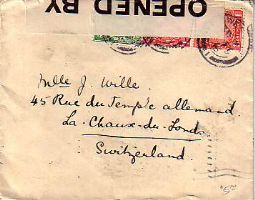 OPENED BY
Mlle J. Wille
45 Rue du Temple allemand.
La-Chaux-du-Fonds
Switzerland.